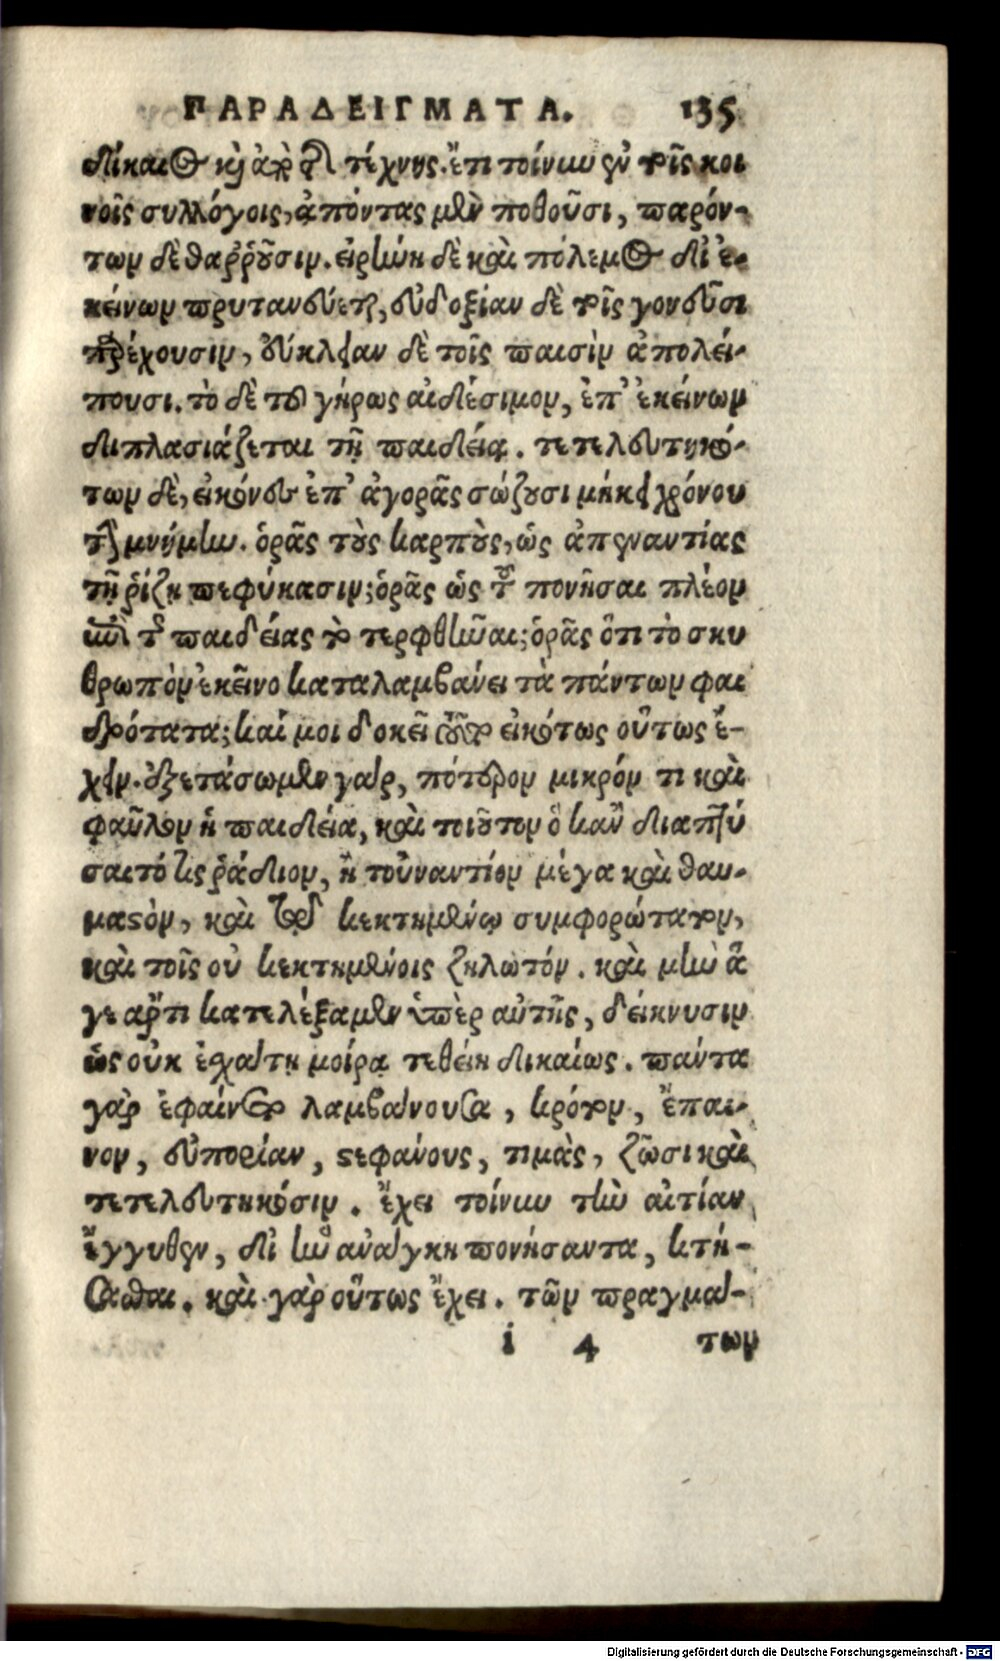 ΠΑΡΑΔΕΙΓΜΑΤΑ. 135
δίκαιος καὶ ἀρχὴ τέχνης. ἔτι τοίνυν ἐν τοῖς κοι
νοῖς συλλόγοις, ἀπόντας μὲν ποθοῦσι, παρόν-
των δὲ θαῤῥοῦσιν. εἰρήνη δὲ καὶ πόλεμος δι' ἐ-
κείνων πρυτανεύεται, εὐδοξίαν δὲ τοῖς γονεῦσι
παρέχουσιν, εὔκλειαν δὲ τοῖς παισὶν ἀπολεί-
πουσι. τὸ δὲ τοῦ γήρως αἰδέσιμον, ἐπ' ἐκείνων
διπλασιάζεται τῇ παιδείᾳ. τετελευτηκό-
των δὲ, εἰκόνες ἐπ' ἀγορᾶς σώζουσι μήκει χρόνου
τὴν μνήμην. ὁρᾷς τοὺς καρποὺς, ὡς ἀπεναντίας
τῇ ῥίζῃ πεφύκασιν; ὁρᾷς ὡς τοῦ πονῆσαι πλέον
ἐπὶ τῆς παιδείας τὸ τερφθῆναι; ὁρᾷς ὅτι τὸ σκυ
θρωπὸν ἐκεῖνο καταλαμβάνει τὰ πάντων φαι
δρότατα; καί μοι δοκεῖ εἰκότως οὕτως ἔ-
χειν. ἐξετάσωμεν γὰρ, πότερον μικρόν τι καὶ
φαῦλον ἡ παιδεία, καὶ τοιοῦτον ὃ κἂν διαπτύ
σαιτό τις ῥᾴδιον, ἢ τοὐναντίον μέγα καὶ θαυ-
μαστὸν, καὶ τῷ κεκτημένῳ συμφορώτατον,
καὶ τοῖς οὐ κεκτημένοις ζηλωτόν. καὶ μὴν ἅ
γε ἄρτι κατελέξαμεν ὑπὲρ αὐτῆς, δείκνυσιν
ὡς οὐκ ἐσχάτῃ μοίρᾳ τεθείη δικαίως. πάντα
γὰρ ἐφαίνετο λαμβάνουσα, κρότον, ἔπαι-
νον, εὐπορίαν, στεφάνους, τιμὰς, ζῶσι καὶ
τετελευτηκόσιν. ἔχει τοίνυν τὴν αἰτίαν
ἔγγυθεν, δι' ἣν ἀνάγκη πονήσαντα, κτή-
σασθαι. καὶ γὰρ οὕτως ἔχει. τῶν πραγμά-
i 4 των
Digitalisierung gefördert durch die Deutsche Forschungsgemeinschaft - DFG